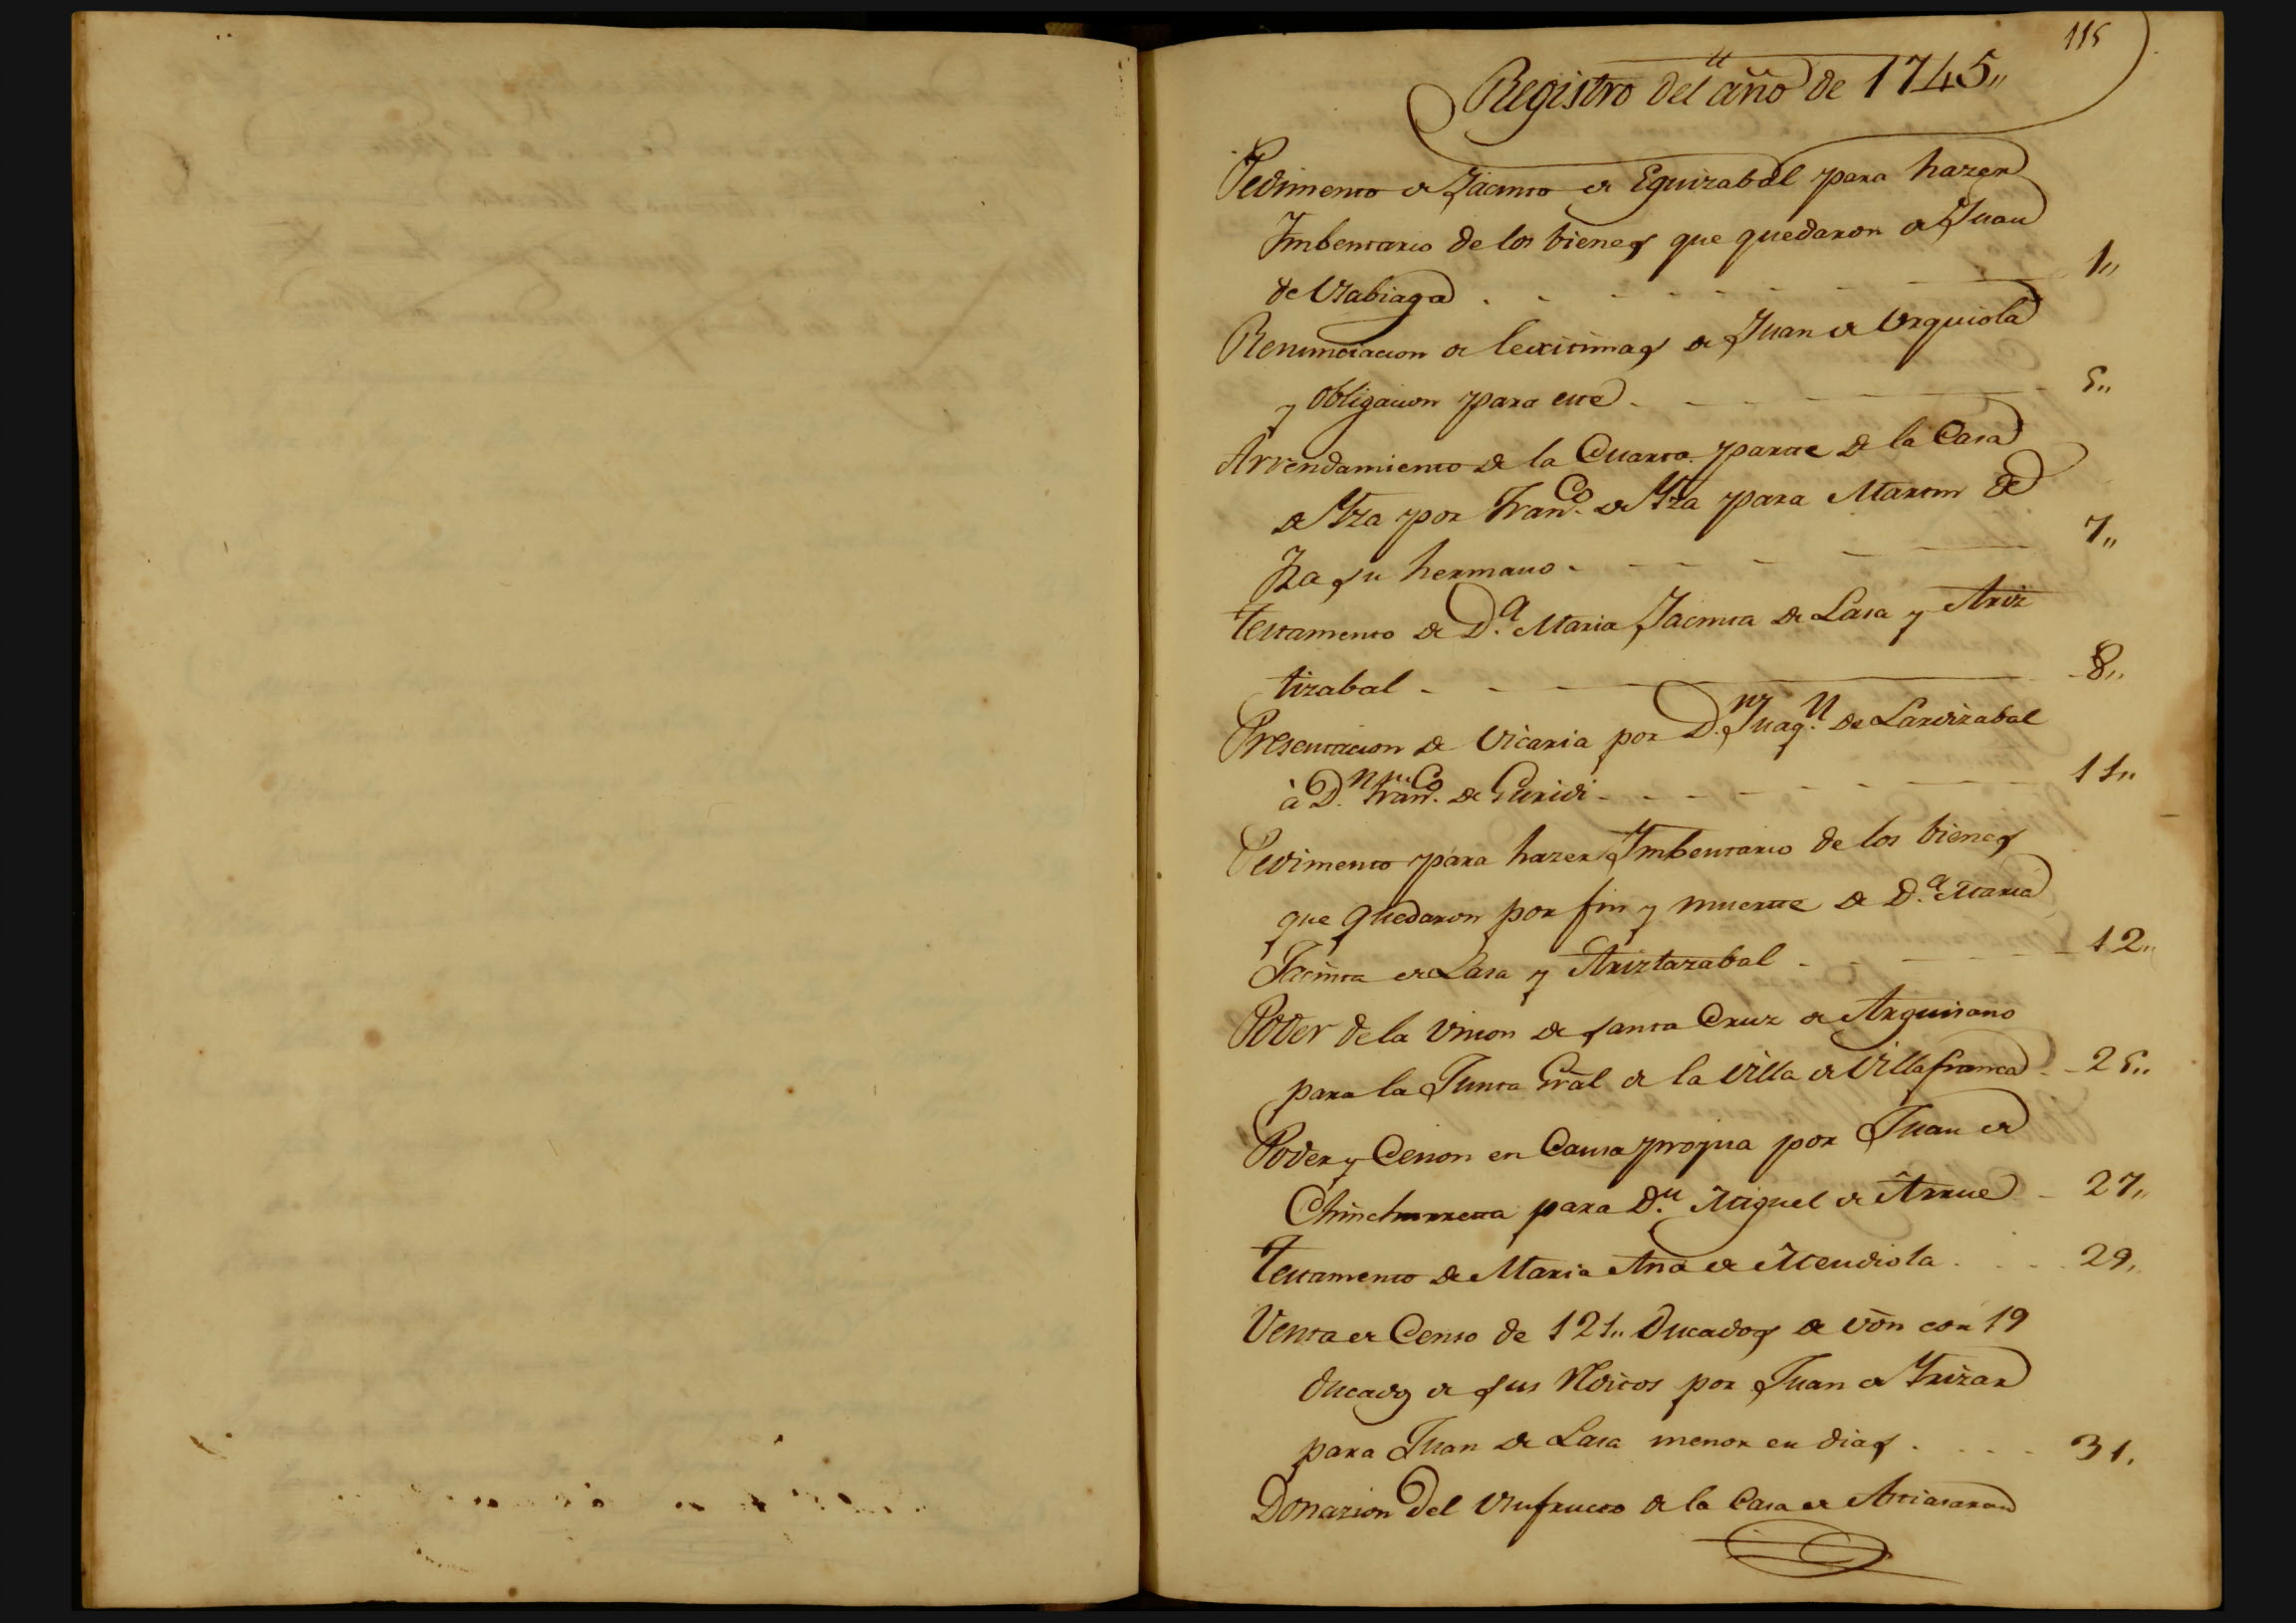 115
Registro del año de 1745,,
Pedimento de Jacinto de Eguizabal para hazer
Imbentario de los bienes que quedaron de Juan
de Vzabiaga - - - - - - - - 1,,
Renunciacion de lexitimas de Juan de Vrquiola
y obligacion para este - - - - - - 5,,
Arrendamiento de la Cuarta parte de la Casa
de Yza por Fran.co de Yza para Martin de
Iza su hermano - - - - - - - 7,,
Testamento de D.a Maria Jacinta de Lasa y Ariz
tizabal - - - - - 8,,
Presentacion de Vicaria por D.n Juaq.n de Lardizabal
à D.n Fran.co de Guridi - - - - - - 11,,
Pedimento para hazer Imbentario de los bienes
que quedaron por fin y muerte de D.a Maria
Jacinta de Lasa y Ariztazabal - - - - 12,,
Poder de la Vnion de santa Cruz de Arguisano
para la Junta Gral de la Villa de Villafranca - - 25,,
Poder y Cesion en Causa propia por Juan de
Chinchurreta para D.n Miguel de Arrue - 27,,
Testamento de Maria Ana de Mendiola . . . 29,
Venta de Censo de 121,, Ducados de von con 19
ducados de sus Reditos por Juan de Yrizar
para Juan de Lasa menor en dias . . . . 31,
Donazion del Vsufructo de la Casa de